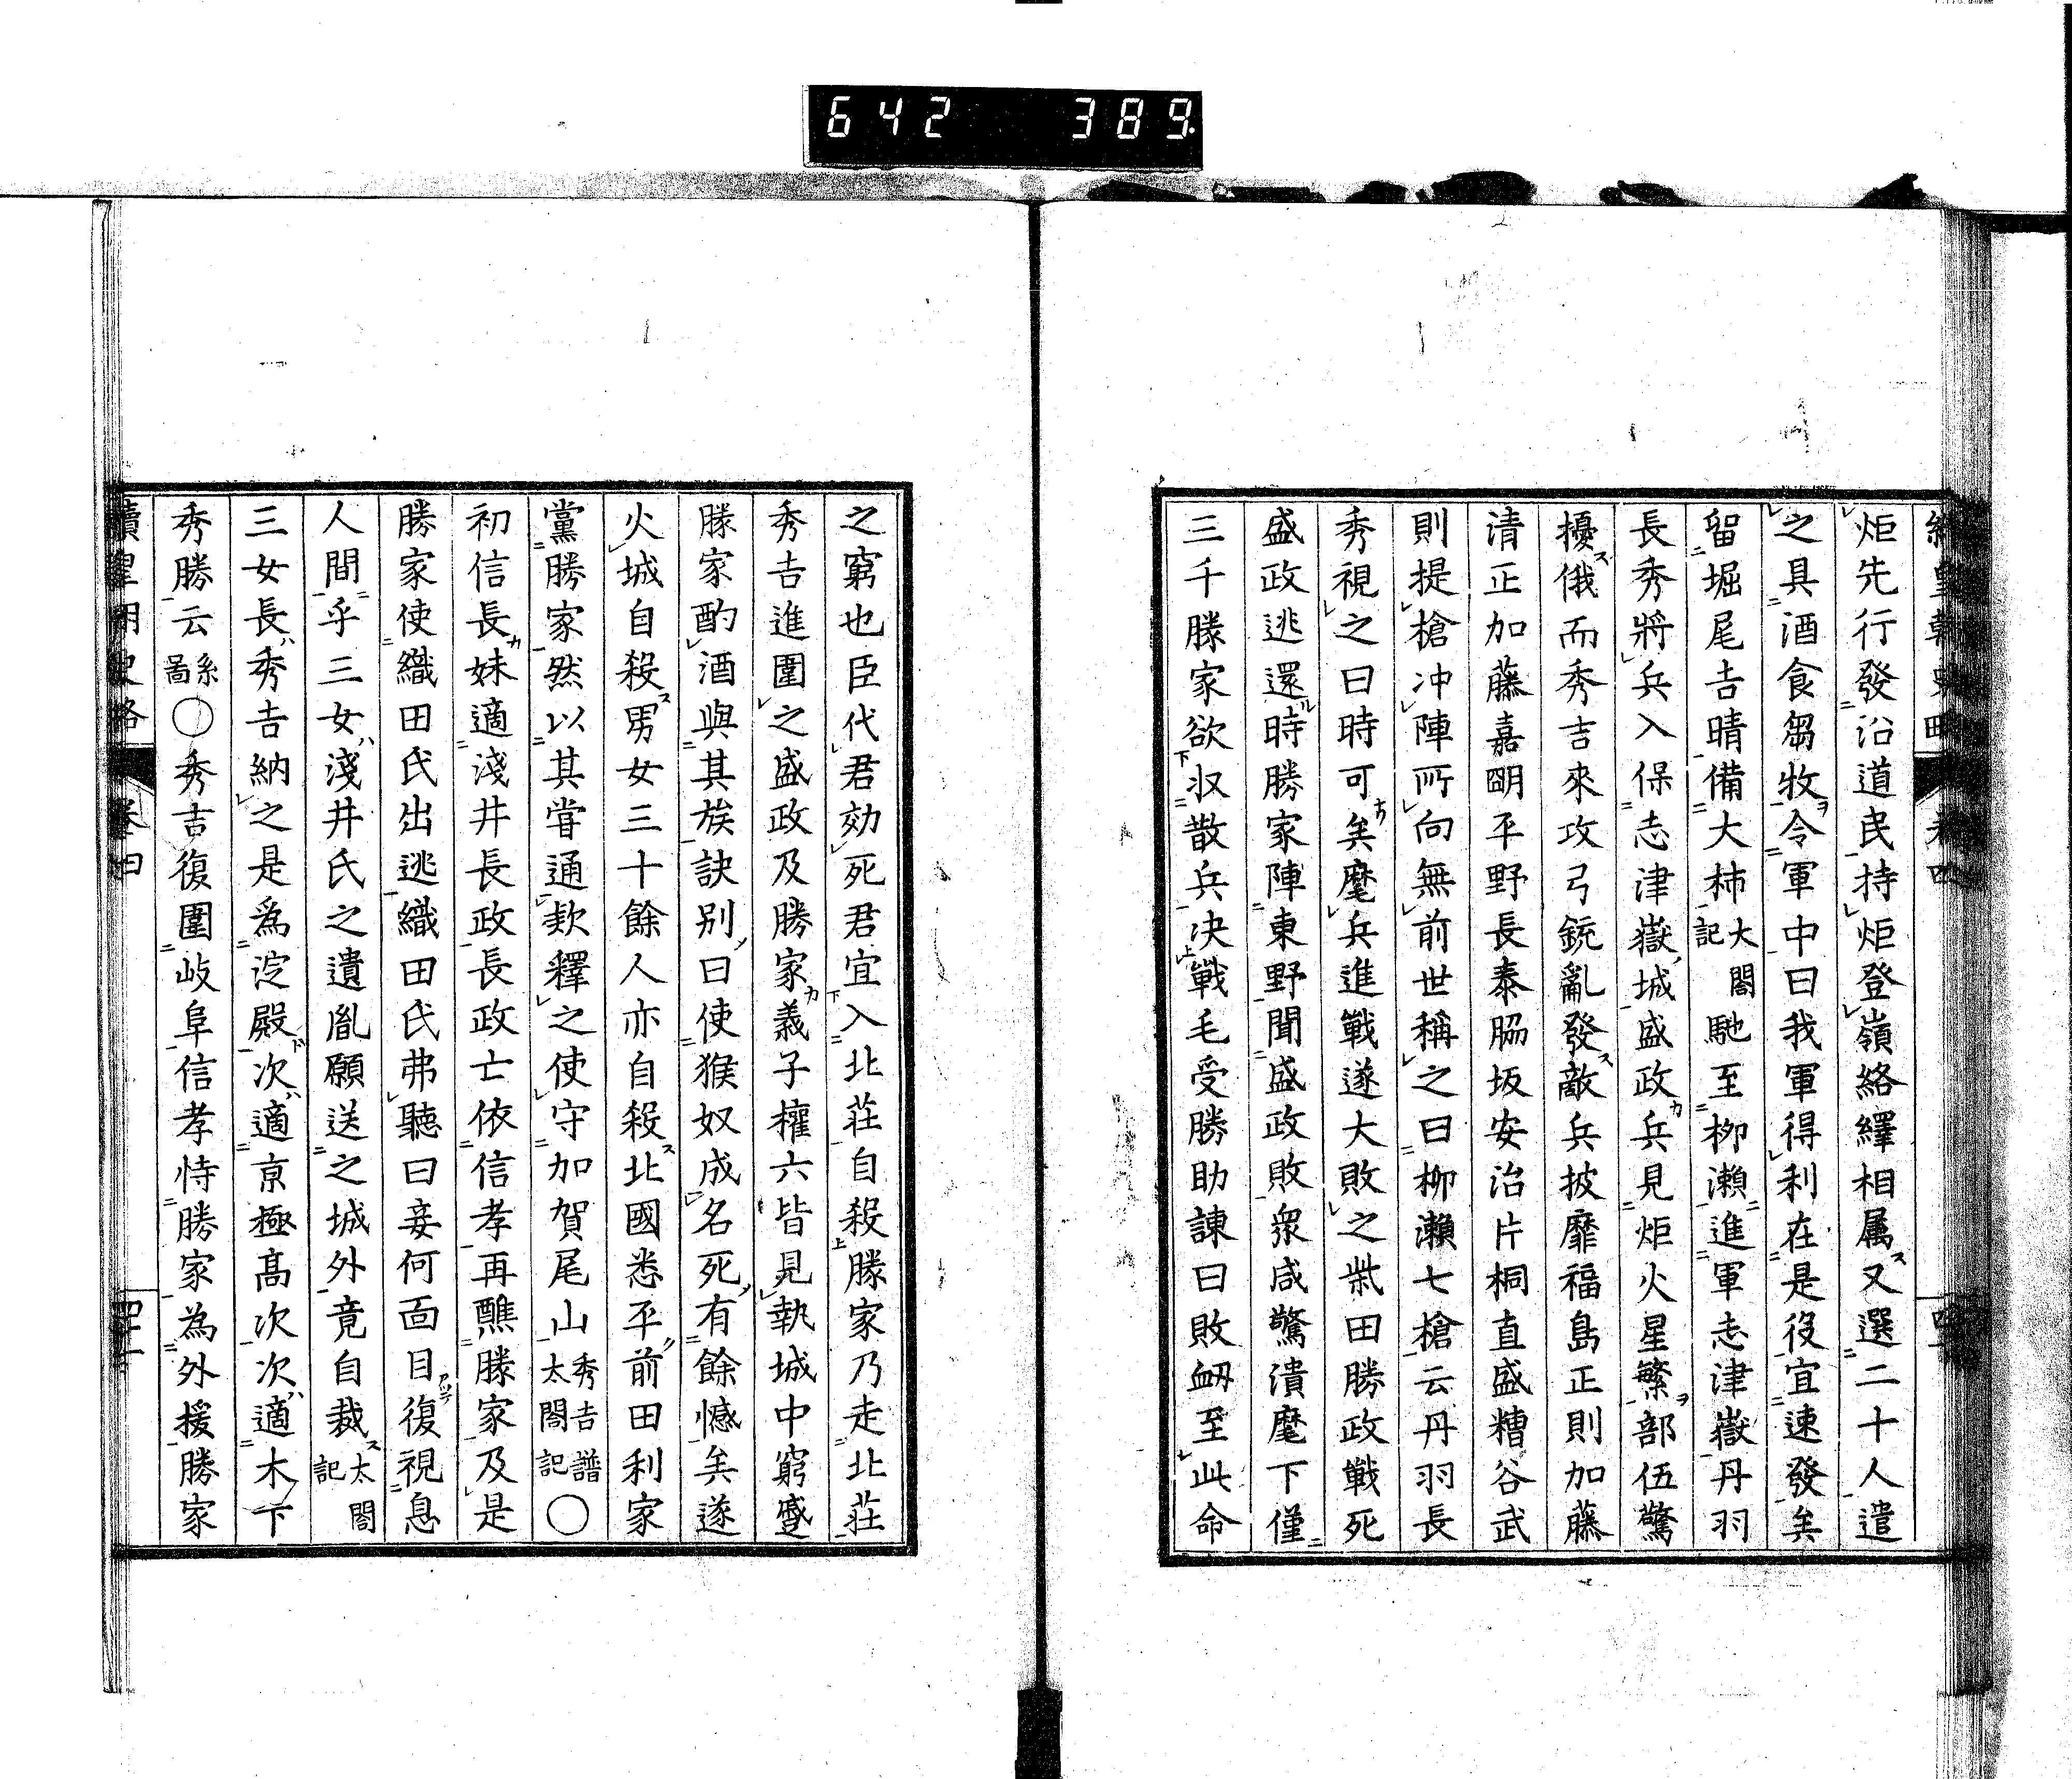 642 389.
炬先行發沿道民持炬登嶺絡繹相属又選二十人遣
之具酒食芻牧令軍中曰我軍得利在是役宜速發矣
留堀尾吉晴備大柿大閤記馳至柳瀬進軍志津嶽丹羽
長秀將兵入保志津嶽城盛政兵見炬火星繁部伍驚
擾俄而秀吉來攻弓銃亂發敵兵披靡福島正則加藤
清正加藤嘉明平野長泰脇坂安治片桐直盛糟谷武
則提槍冲陣所向無前世稱之曰柳瀬七槍云丹羽長
秀視之曰時可矣麾兵進戰遂大敗之柴田勝政戰死
盛政逃還時勝家陣東野聞盛政敗衆咸驚潰麾下僅
三千勝家欲收散兵决戰毛受勝助諌曰敗衂至此命
之窮也臣代君効死君宜入北莊自殺勝家乃走北莊
秀吉進圍之盛政及勝家義子權六皆見執城中窮蹙
勝家酌酒與其族訣别曰使猴奴成名死有餘憾矣遂
火城自殺男女三十餘人亦自殺北國悉平前田利家
黨勝家然以其嘗通欵釋之使守加賀尾山秀吉譜太閤記○
初信長妹適淺井長政長政亡依信孝再醮勝家及是
勝家使織田氏出逃織田氏弗聽曰妾何面目復視息
人間乎三女淺井氏之遺胤願送之城外竟自裁太閤記
三女長秀吉納之是爲淀殿次適京極高次次適木下
秀勝云系啚○秀吉復圍岐阜信孝恃勝家為外援勝家